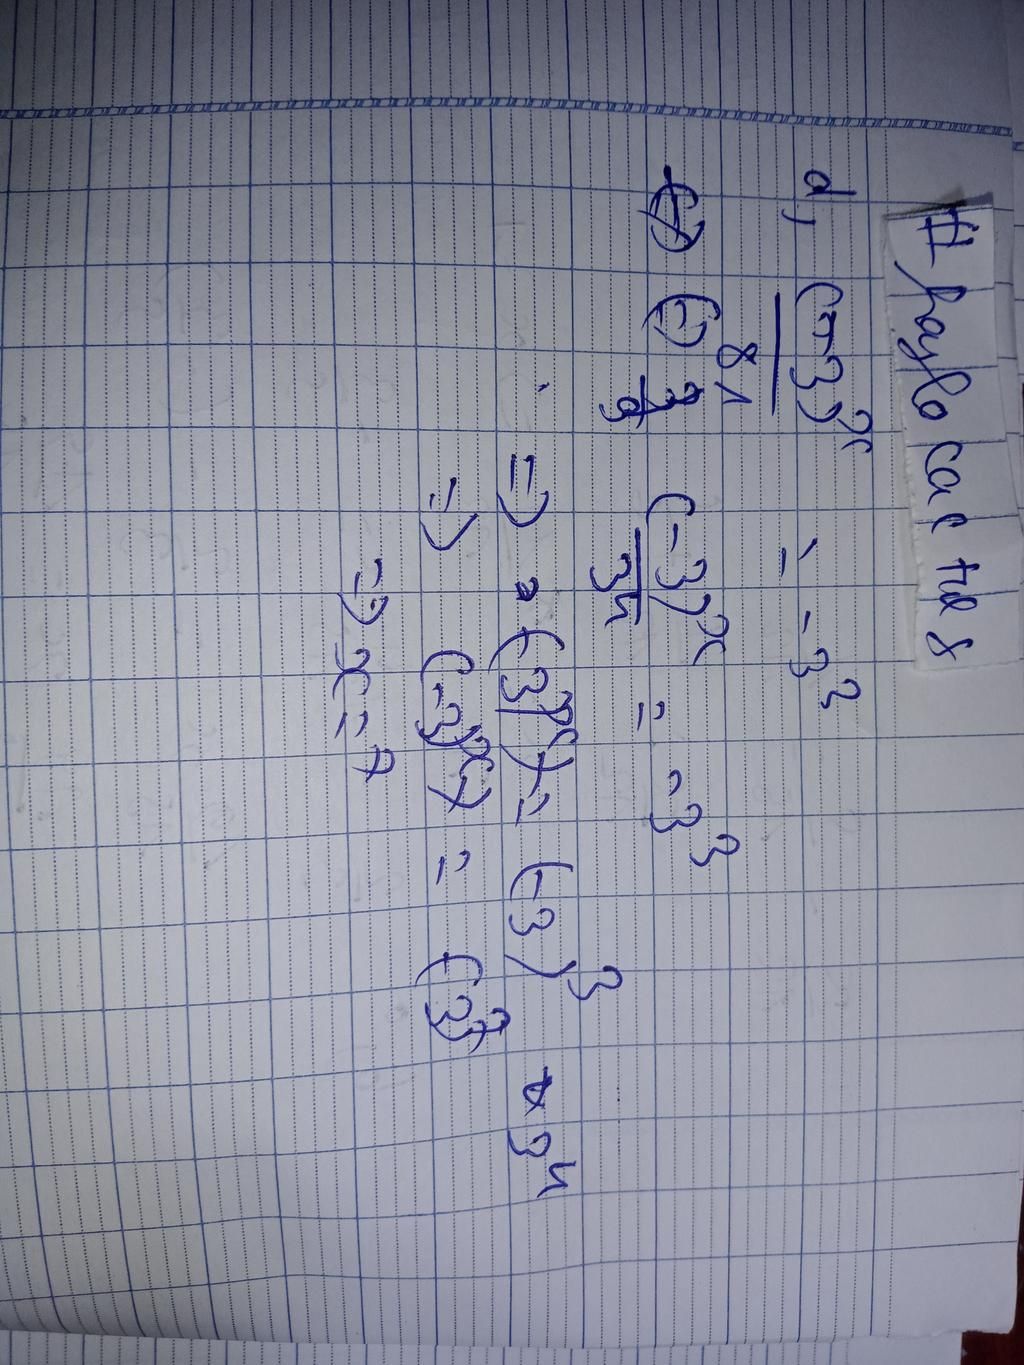 # haylo cac tus
d, (-3)^x / 81 = -3^3
(-) (-3)^x / 3^4 = -3^3
=> (-3)^x = (-3)^3 x 3^4
=> (-3)^x = (-3)^7
=> x = 7